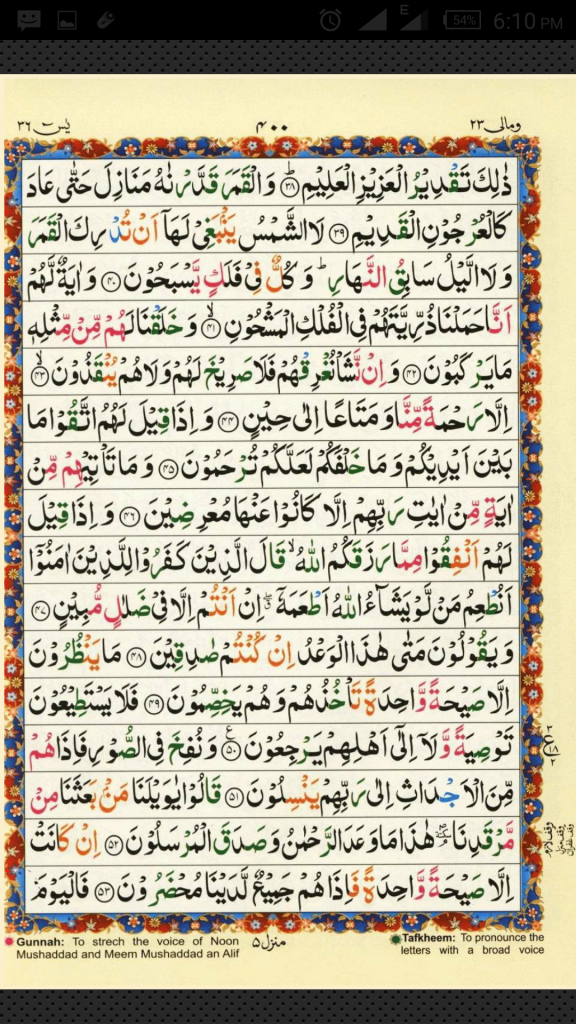 54% 6:10 PM
E
ومالى ٢٣
٤٠٠
يٰسٓ ٣٦
ذٰلِكَ تَقْدِيْرُ الْعَزِيْزِ الْعَلِيْمِ ﴿٣٨﴾ وَالْقَمَرَ قَدَّرْنٰهُ مَنَازِلَ حَتّٰى عَادَ
كَالْعُرْجُوْنِ الْقَدِيْمِ ﴿٣٩﴾ لَا الشَّمْسُ يَنْۢبَغِىْ لَهَاۤ اَنْ تُدْرِكَ الْقَمَرَ
وَلَا الَّيْلُ سَابِقُ النَّهَارِ ؕ وَكُلٌّ فِىْ فَلَكٍ يَّسْبَحُوْنَ ﴿٤٠﴾ وَاٰيَةٌ لَّهُمْ
اَنَّا حَمَلْنَا ذُرِّيَّتَهُمْ فِى الْفُلْكِ الْمَشْحُوْنِ ﴿٤١﴾ۙ وَخَلَقْنَا لَهُمْ مِّنْ مِّثْلِهٖ
مَا يَرْكَبُوْنَ ﴿٤٢﴾ وَاِنْ نَّشَاْ نُغْرِقْهُمْ فَلَا صَرِيْخَ لَهُمْ وَلَا هُمْ يُنْقَذُوْنَ ﴿٤٣﴾ۙ
اِلَّا رَحْمَةً مِّنَّا وَمَتَاعًا اِلٰى حِيْنٍ ﴿٤٤﴾ وَاِذَا قِيْلَ لَهُمُ اتَّقُوْا مَا
بَيْنَ اَيْدِيْكُمْ وَمَا خَلْفَكُمْ لَعَلَّكُمْ تُرْحَمُوْنَ ﴿٤٥﴾ وَمَا تَاْتِيْهِمْ مِّنْ
اٰيَةٍ مِّنْ اٰيٰتِ رَبِّهِمْ اِلَّا كَانُوْا عَنْهَا مُعْرِضِيْنَ ﴿٤٦﴾ وَاِذَا قِيْلَ
لَهُمْ اَنْفِقُوْا مِمَّا رَزَقَكُمُ اللّٰهُ ۙ قَالَ الَّذِيْنَ كَفَرُوْا لِلَّذِيْنَ اٰمَنُوْۤا
اَنُطْعِمُ مَنْ لَّوْ يَشَآءُ اللّٰهُ اَطْعَمَهٗۤ ۖ اِنْ اَنْتُمْ اِلَّا فِىْ ضَلٰلٍ مُّبِيْنٍ ﴿٤٧﴾
وَيَقُوْلُوْنَ مَتٰى هٰذَا الْوَعْدُ اِنْ كُنْتُمْ صٰدِقِيْنَ ﴿٤٨﴾ مَا يَنْظُرُوْنَ
اِلَّا صَيْحَةً وَّاحِدَةً تَاْخُذُهُمْ وَهُمْ يَخِصِّمُوْنَ ﴿٤٩﴾ فَلَا يَسْتَطِيْعُوْنَ
تَوْصِيَةً وَّلَاۤ اِلٰۤى اَهْلِهِمْ يَرْجِعُوْنَ ﴿٥٠﴾ ع وَنُفِخَ فِى الصُّوْرِ فَاِذَا هُمْ
مِّنَ الْاَجْدَاثِ اِلٰى رَبِّهِمْ يَنْسِلُوْنَ ﴿٥١﴾ قَالُوْا يٰوَيْلَنَا مَنْۢ بَعَثَنَا مِنْ
مَّرْقَدِنَا ۘ هٰذَا مَا وَعَدَ الرَّحْمٰنُ وَصَدَقَ الْمُرْسَلُوْنَ ﴿٥٢﴾ اِنْ كَانَتْ
اِلَّا صَيْحَةً وَّاحِدَةً فَاِذَا هُمْ جَمِيْعٌ لَّدَيْنَا مُحْضَرُوْنَ ﴿٥٣﴾ فَالْيَوْمَ
Gunnah: To strech the voice of Noon
Mushaddad and Meem Mushaddad an Alif
منزل ٥
Tafkheem: To pronounce the
letters with a broad voice